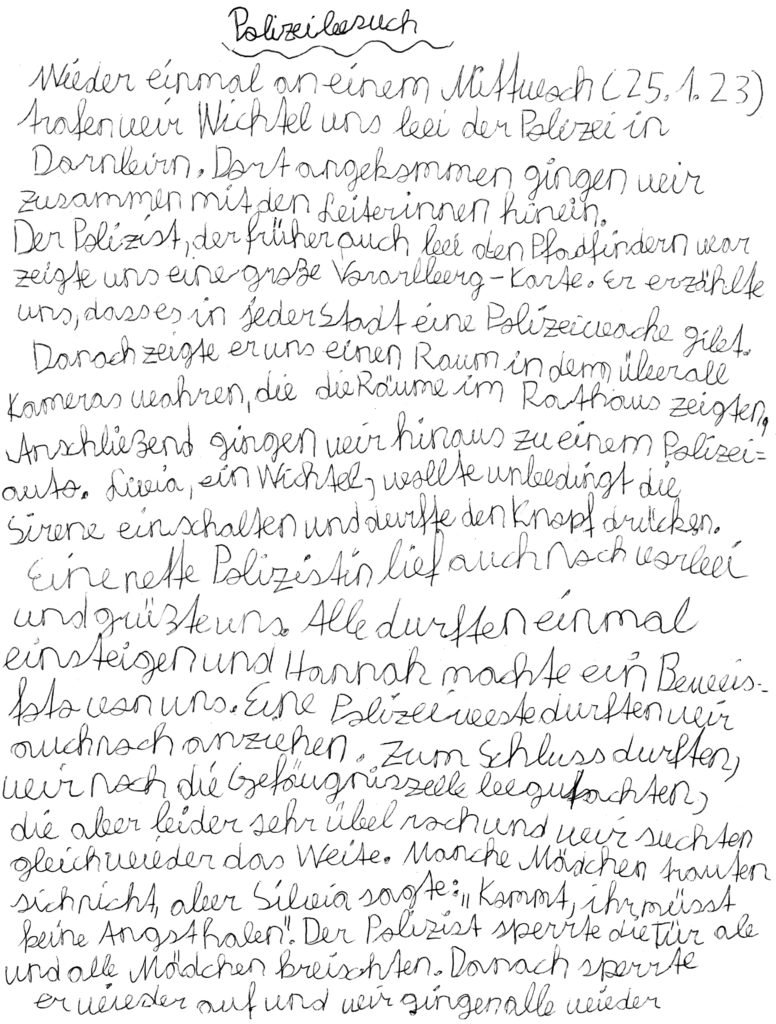 Polizeibesuch
Wieder einmal an einem Mittwoch (25.1.23)
trafen wir Wichtel uns bei der Polizei in
Dornbirn. Dort angekommen gingen wir
zusammen mit den Leiterinnen hinein.
Der Polizist, der früher auch bei den Pfadfindern war
zeigte uns eine große Vorarlberg-Karte. Er erzählte
uns, dass es in jeder Stadt eine Polizeiwache gibt.
Danach zeigte er uns einen Raum in dem überall
Kameras wahren, die die Räume im Rathaus zeigten.
Anschließend gingen wir hinaus zu einem Polizei=
auto. Livia, ein Wichtel, wollte unbedingt die
Sirene einschalten und durfte den Knopf drücken.
Eine nette Polizistin lief auch noch vorbei
und grüßte uns. Alle durften einmal
einsteigen und Hannah machte ein Beweis-
foto von uns. Eine Polizeiweste durften wir
auch noch anziehen. Zum Schluss durften,
wir noch die Gefängniszelle begutachten,
die aber leider sehr übel roch und wir suchten
gleich wieder das Weite. Manche Mädchen trauten
sich nicht, aber Silvia sagte: „Kommt, ihr müsst
keine Angst haben". Der Polizist sperrte die Tür ab
und alle Mädchen kreischten. Danach sperrte
er wieder auf und wir gingen alle wieder